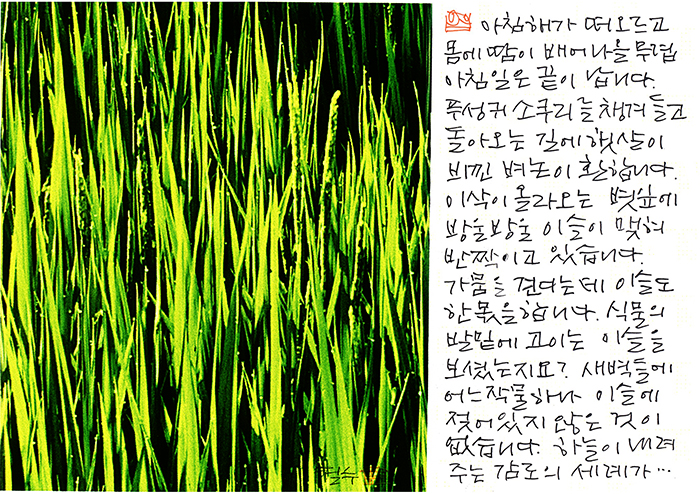 아침해가 떠오르고
몸에 땀이 배어나올 무렵
아침일은 끝이 납니다.
푸성귀 소쿠리를 챙겨 들고
돌아오는 길에 햇살이
비낀 벼논이 환합니다.
이삭이 올라오는 볏잎에
방울방울 이슬이 맺혀
반짝이고 있습니다.
가뭄을 견디는데 이슬도
한 몫을 합니다. 식물의
발밑에 고이는 이슬을
보셨는지요? 새벽들에
어느 작물하나 이슬에
젖어있지 않은 것이
없습니다. 하늘이 내려
주는 감로의 세례가…
철수